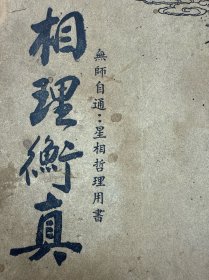 無師自通：星相哲理用書
相理衡真